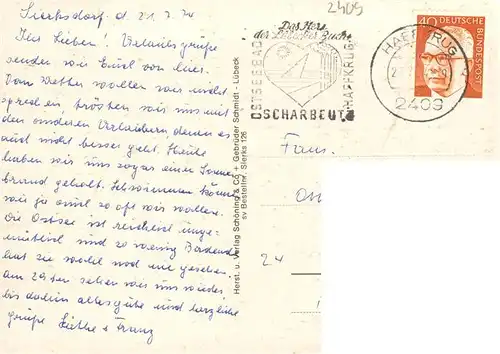 Sierksdorf. d. 21.7.74
Ihr Lieben! Urlaubsgrüße
senden wir Euch von hier.
Vom Wetter wollen wir nicht
sprechen, trösten wir uns mit
den anderen Urlaubern denen es
auch nicht besser geht. Heute
haben wir uns sogar einen Sonnen
brand geholt. Schwimmen können
wir ja auch so oft wir wollen.
Die Ostsee ist reichlich unge-
mütlich und so wenig Badende
hat sie wohl noch nie gesehen.
am 29sten sehen wir uns wieder
bis dahin alles gute und herzliche
grüße Käthe & Franz
Herst. u. Verlag Schöning & Co + Gebrüder Schmidt - Lübeck
sv Bestellnr. Sierks 126
2409
Das Herz
der Lübecker Bucht
OSTSEEBAD
HAFFKRUG
SCHARBEUTZ
HAFFKRUG
2409
40 DEUTSCHE
BUNDESPOST
Fam.
24